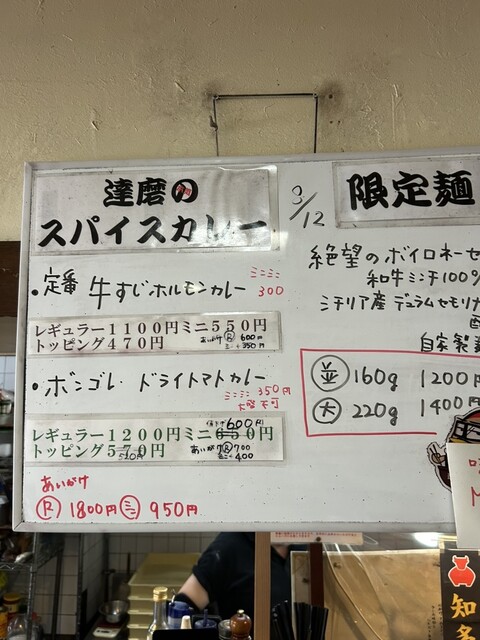 達磨の
スパイスカレー
・定番 牛すじホルモンカレー
ミニミニ
300
レギュラー1100円ミニ550円
トッピング470円
あいがけ Ⓡ 600円
ミニ 350円
・ボンゴレ ドライトマトカレー
ミニミニ 350円
大盛不可
600円
レギュラー1200円ミニ650円
トッピング570円
520円
あいがけ Ⓡ 700
ミニ 400
あいがけ
Ⓡ 1800円 ミニ 950円
3/12
限定麺
絶望のボイロネーゼ
和牛ミンチ100%
シチリア産 デュラムセモリナ
自家製
並 160g 1200円
大 220g 1400円
知多